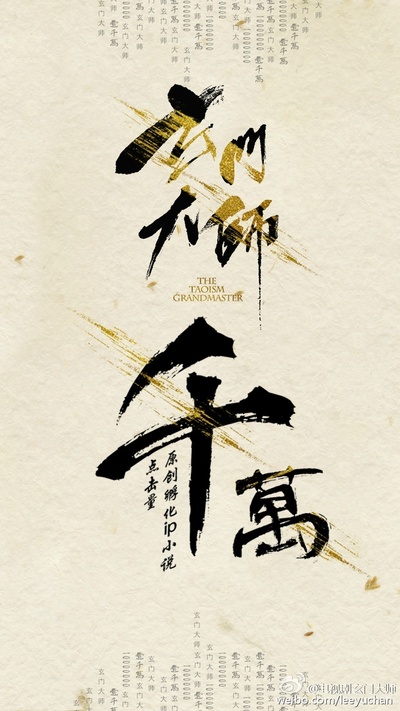 玄門
大師
THE
TAOISM
GRANDMASTER
千
萬
原创孵化ip小说
点击量
@电视剧玄门大师
weibo.com/leeyuchan